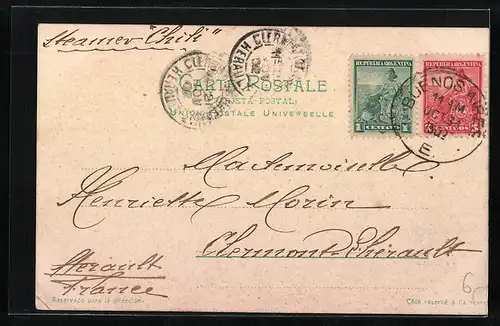 Steamer "Chili"
CARTE POSTALE
(TARJETA POSTAL)
UNION POSTALE UNIVERSELLE
REPUBLICA ARGENTINA
1 CENTAVO 1
REPUBLICA ARGENTINA
5 CENTAVOS 5
BUENOS AIRES
11 AM
OCT
E
CLERM
HERAULT
02
Mademoiselle
Henriette Morin
Clermont-l'Hérault
Hérault
France
Reservado para la dirección.
Côté réservé à l'a
6.